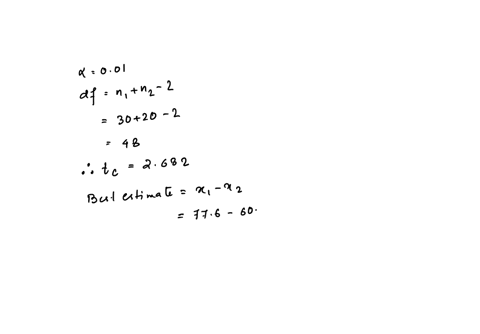 α = 0.01
df = n₁ + n₂ - 2
= 30 + 20 - 2
= 48
∴ t꜀ = 2.682
Best estimate = x₁ - x₂
= 77.6 - 60.